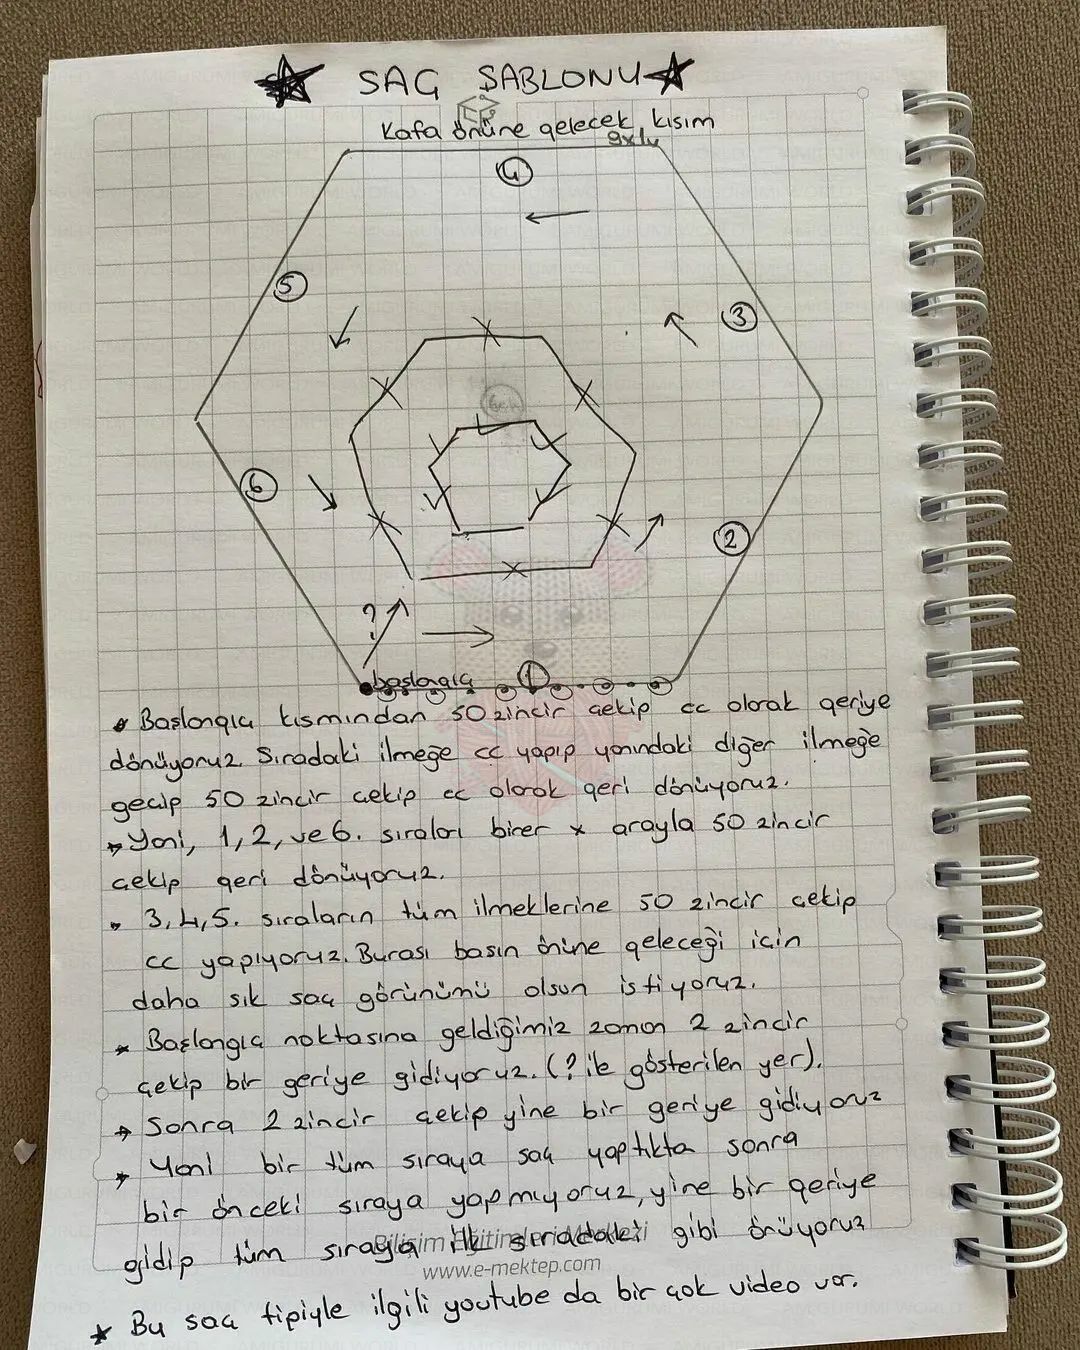 SAÇ ŞABLONU
Kafa önüne gelecek kısım
4
5
3
6
2
?
başlangıç
1
Başlangıç kısmından 50 zincir çekip cc olarak geriye
dönüyoruz. Sıradaki ilmeğe cc yapıp yanındaki diğer ilmeğe
geçip 50 zincir çekip cc olarak geri dönüyoruz.
Yani, 1, 2, ve 6. sıraları birer x arayla 50 zincir
çekip geri dönüyoruz.
3, 4, 5. sıraların tüm ilmeklerine 50 zincir çekip
cc yapıyoruz. Burası başın önüne geleceği için
daha sık saç görünümü olsun istiyoruz.
Başlangıç noktasına geldiğimiz zaman 2 zincir
çekip bir geriye gidiyoruz. (? ile gösterilen yer).
Sonra 2 zincir çekip yine bir geriye gidiyoruz
Yani bir tüm sıraya saç yaptıkta sonra
bir önceki sıraya yapmıyoruz, yine bir geriye
gidip tüm sıraya ilk sıradaki gibi örüyoruz
Bilişim Eğitimleri Merkezi
www.e-mektep.com
Bu saç tipiyle ilgili youtube da bir çok video var.